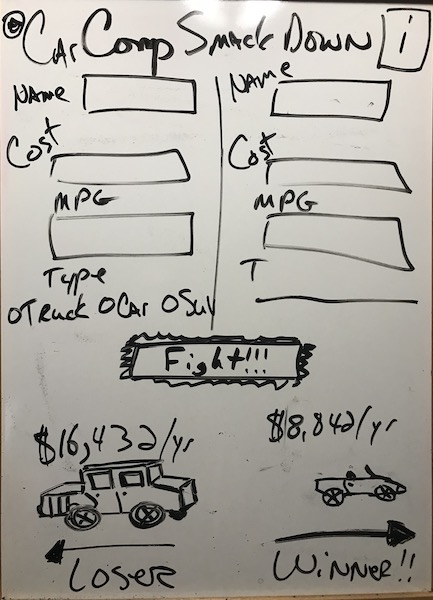 Car Comp Smack Down i
Name
Cost
MPG
Type
O Truck O Car O SUV
Name
Cost
MPG
T
Fight!!!
$16,432/yr
Loser
$8,842/yr
Winner!!